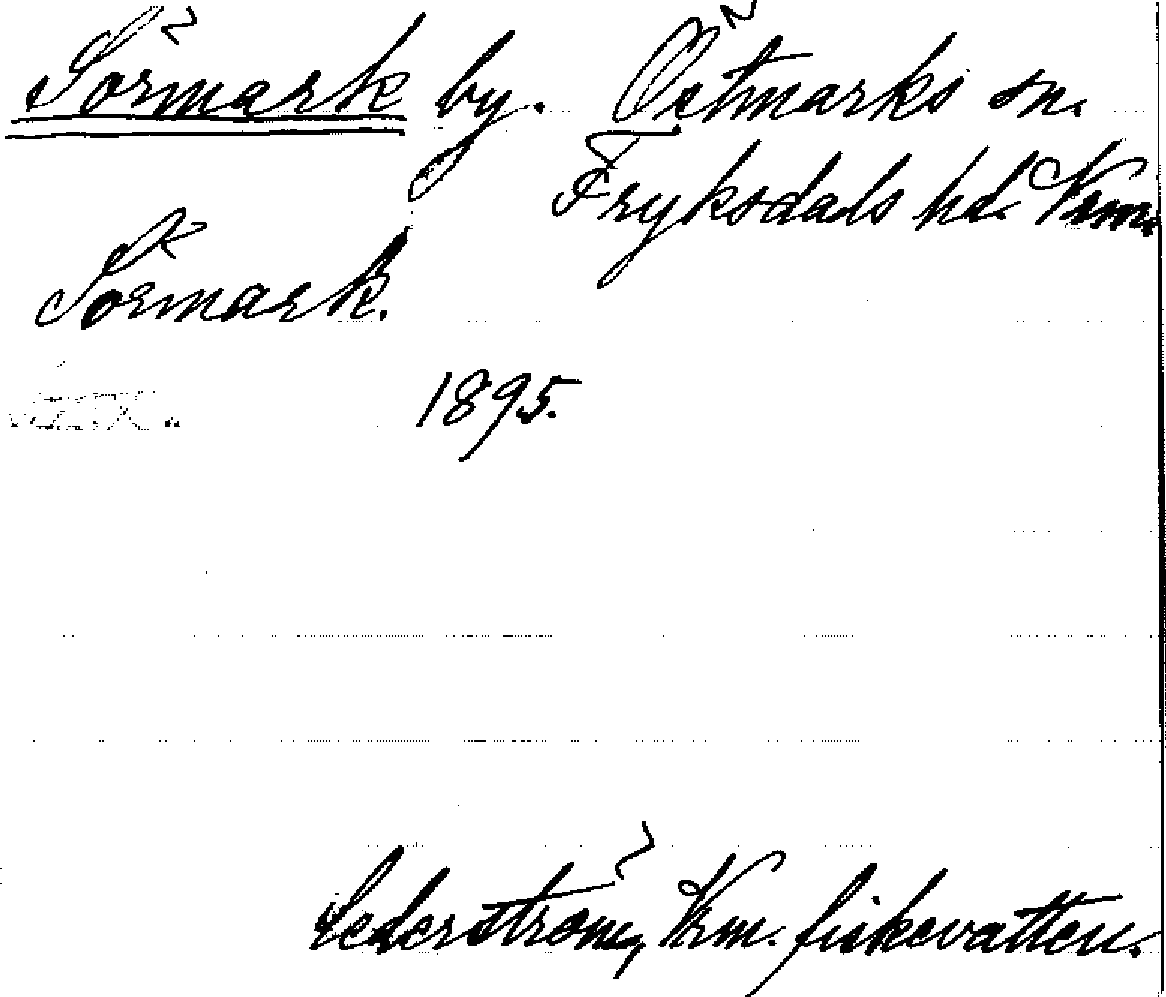 Sörmark by. Östmarks sn.
Fryksdals hd. Vrm.
Sörmark.
1895.
Cederström, Vrm. fiskevatten.